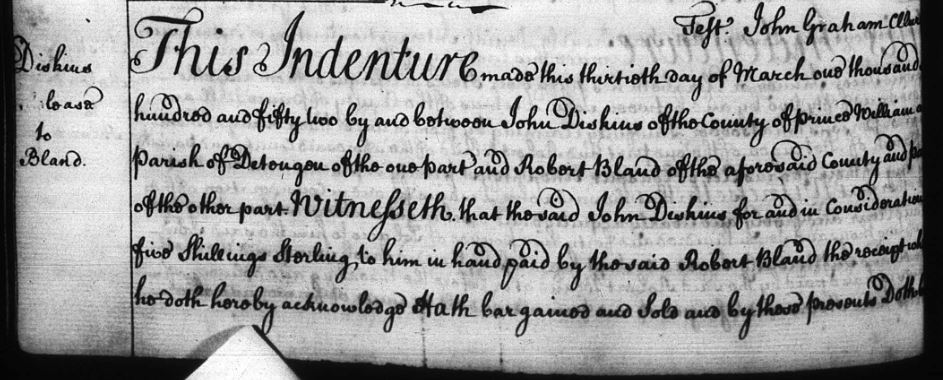 Test. John Graham
Diskins
lease
to
Bland.
This Indenture made this thirtieth day of March one thousand
hundred and fifty two by and between John Diskins of the County of prince William
parish of Detengen of the one part and Robert Bland of the aforesaid County and
of the other part. Witnesseth. that the said John Diskins for and in Consideration
five Shillings Sterling to him in hand paid by the said Robert Bland the receipt
he doth hereby acknowledge Hath bargained and Sold and by these presents Doth